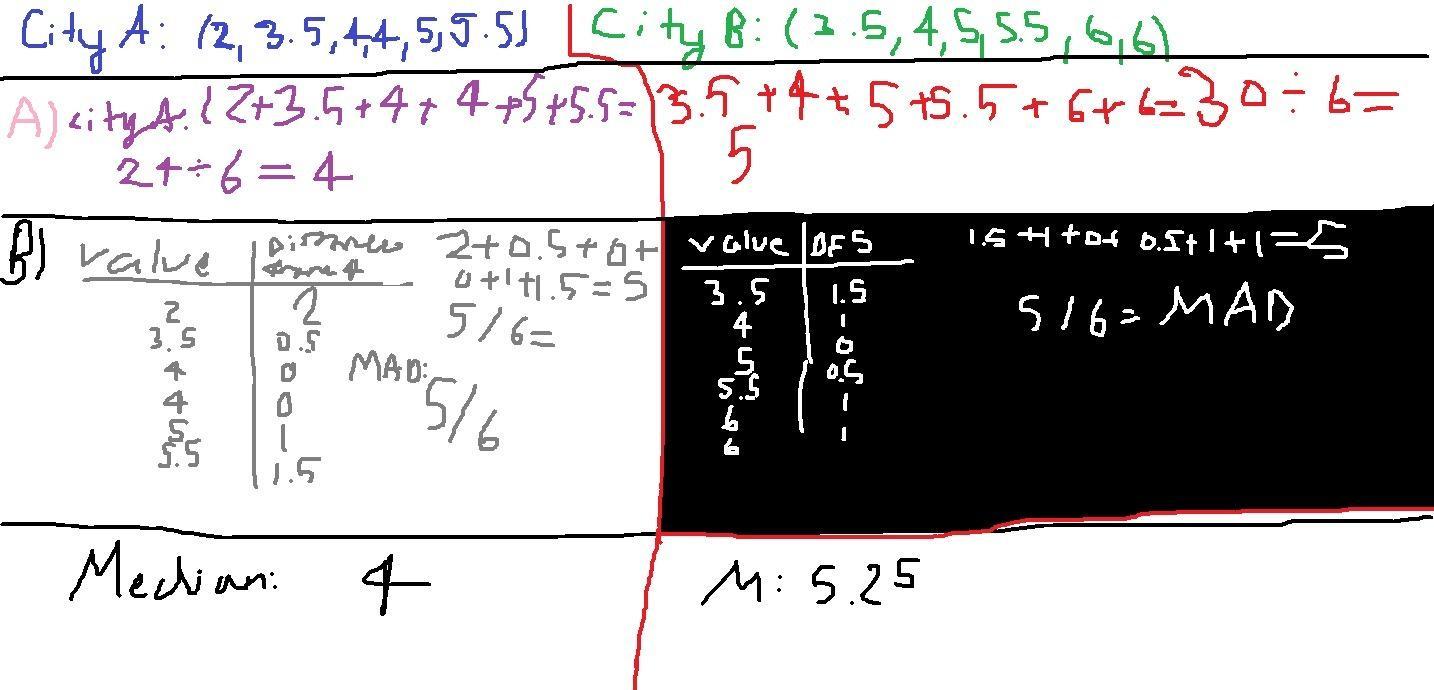 City A: (2, 3.5, 4, 4, 5, 5.5)
City B: (3.5, 4, 5, 5.5, 6, 6)
A) city A: (2+3.5+4+4+5+5.5=
24÷6=4
3.5+4+5+5.5+6+6=30÷6=
5
B)
value | Distance from 4
2 | 2
3.5 | 0.5
4 | 0
4 | 0
5 | 1
5.5 | 1.5
2+0.5+0+
0+1+1.5=5
5/6=
MAD:
5/6
value | DF5
3.5 | 1.5
4 | 1
5 | 0
5.5 | 0.5
6 | 1
6 | 1
1.5+1+0+0.5+1+1=5
5/6=MAD
Median: 4
M: 5.25